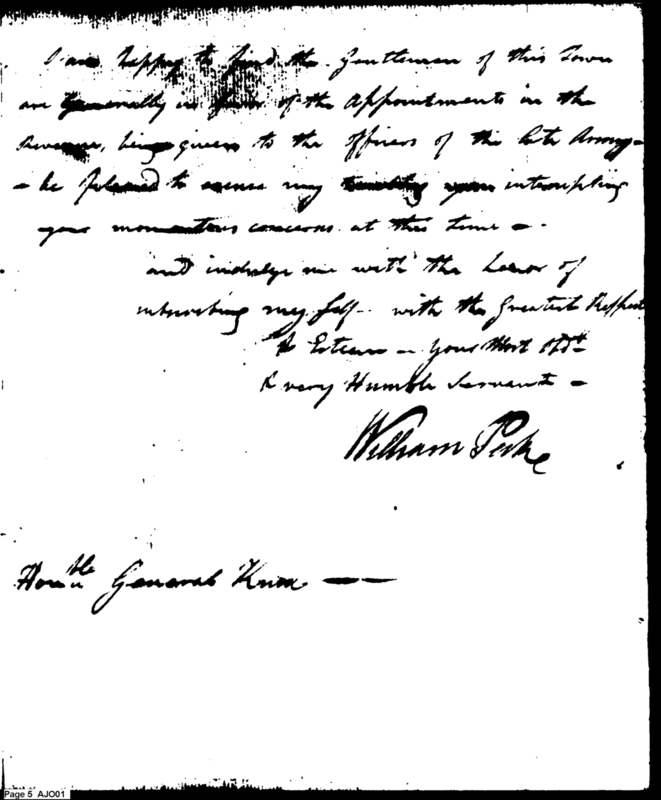 I am happy to find the Gentlemen of this Town
are Generally in favor of the Appointments in the
Revenue, being given to the officers of the late Army –
– be pleased to excuse my intrrupting
your momentous concerns at this time –
and indulge me with the honor of
subscribing my self – with the Greatest Respect
& Esteem – your Most Obdt
& very Humble Servant –
William Peck
Honble General Knox — —
Page 5 AJO01